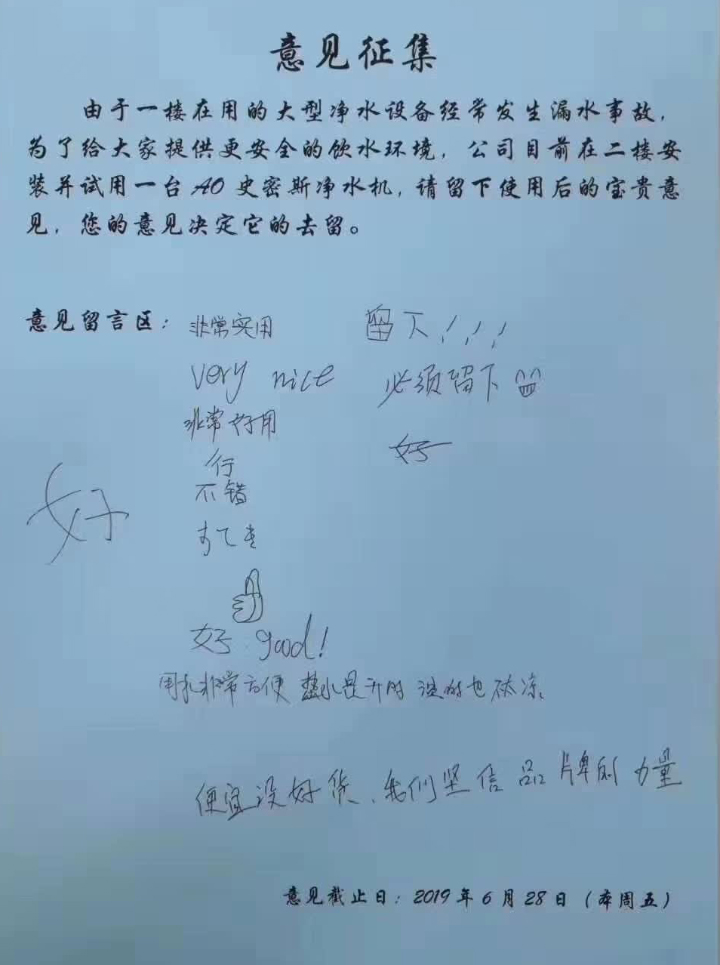 意见征集
由于一楼在用的大型净水设备经常发生漏水事故，
为了给大家提供更安全的饮水环境，公司目前在二楼安
装并试用一台AO史密斯净水机，请留下使用后的宝贵意
见，您的意见决定它的去留。
意见留言区：
非常实用
very nice
非常好用
行
不错
すてき
好 good!
留下!!!
必须留下
好
好
用水非常方便 热水是开的
便宜没好货、我们坚信品牌的力量
意见截止日：2019年6月28日（本周五）